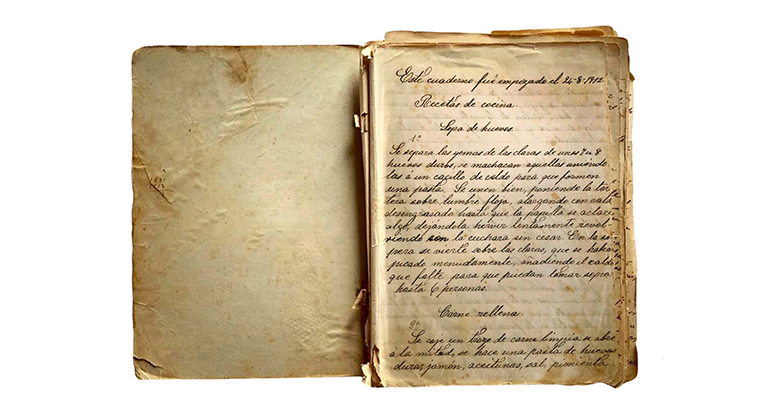 Este cuaderno fué empezado el 24-8-1912
Recetas de cocina.
Sopa de huevos.
1ª
Se separa las yemas de las claras de unos 7 u 8
huevos duros, se machacan aquellas uniendo
las á un cacillo de caldo para que formen
una pasta. Se unen bien, poniendo la tar
tera sobre lumbre floja, alargando con caldo
desengrasado hasta que la papilla se aclare
algo, dejándola hervir lentamente revol
viendo con la cuchara sin cesar. En la so
pera se vierte sobre las claras, que se habrá
picado menudamente, añadiendo el caldo
que falte para que puedan tomar sopa
hasta 6 personas.
Carne rellena.
2ª
Se coje un trozo de carne limpia se abre
á la mitad, se hace una pasta de huevos
duros, jamón, aceitunas, sal, pimienta